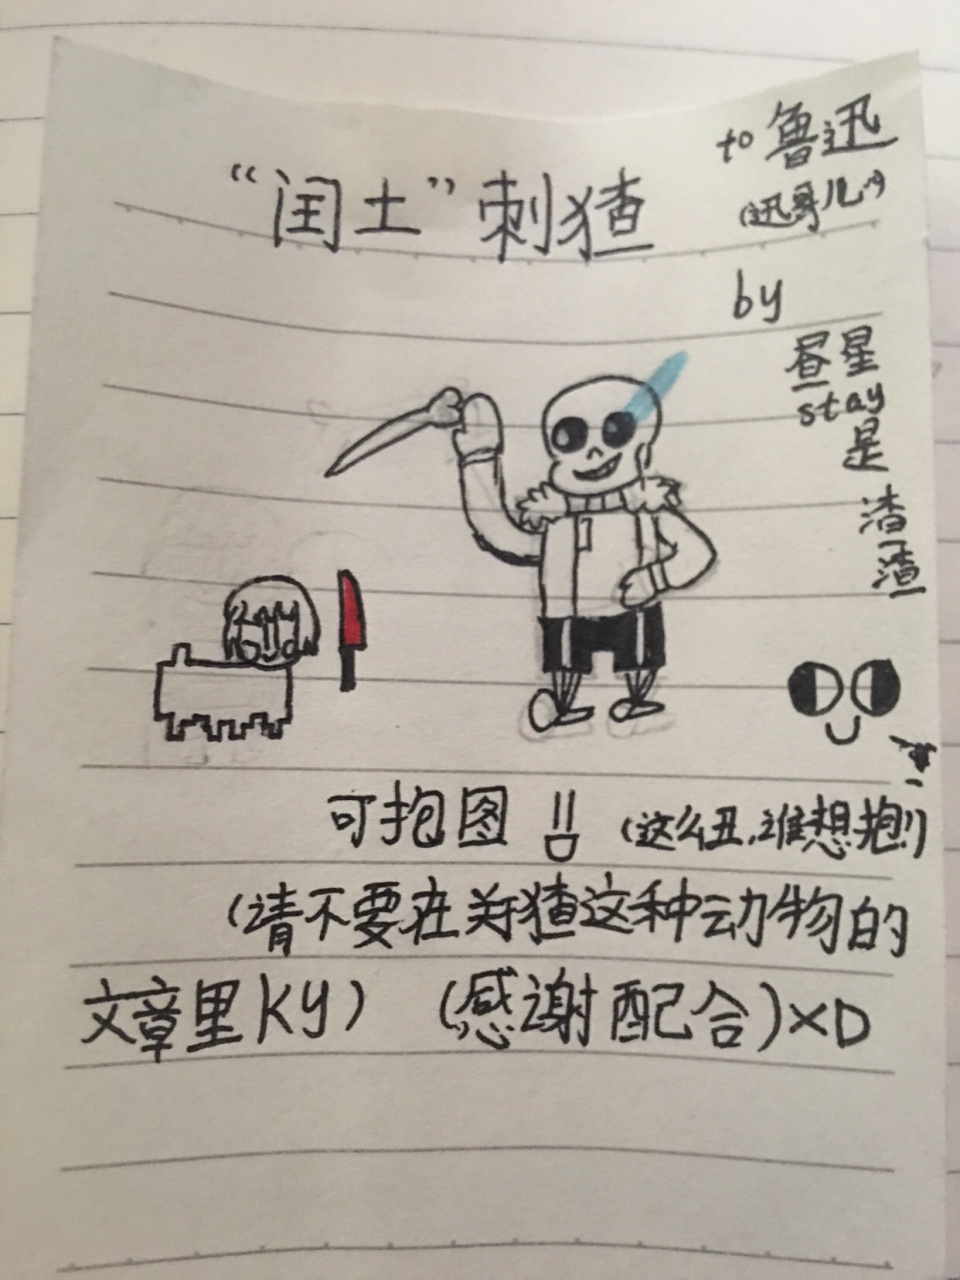 to 鲁迅
(迅哥儿^^)
“闰土”刺猹
by
昼星
stay
是
渣
渣
可抱图
(这么丑,谁想抱!)
(请不要在关于猹这种动物的
文章里KY) (感谢配合)XD